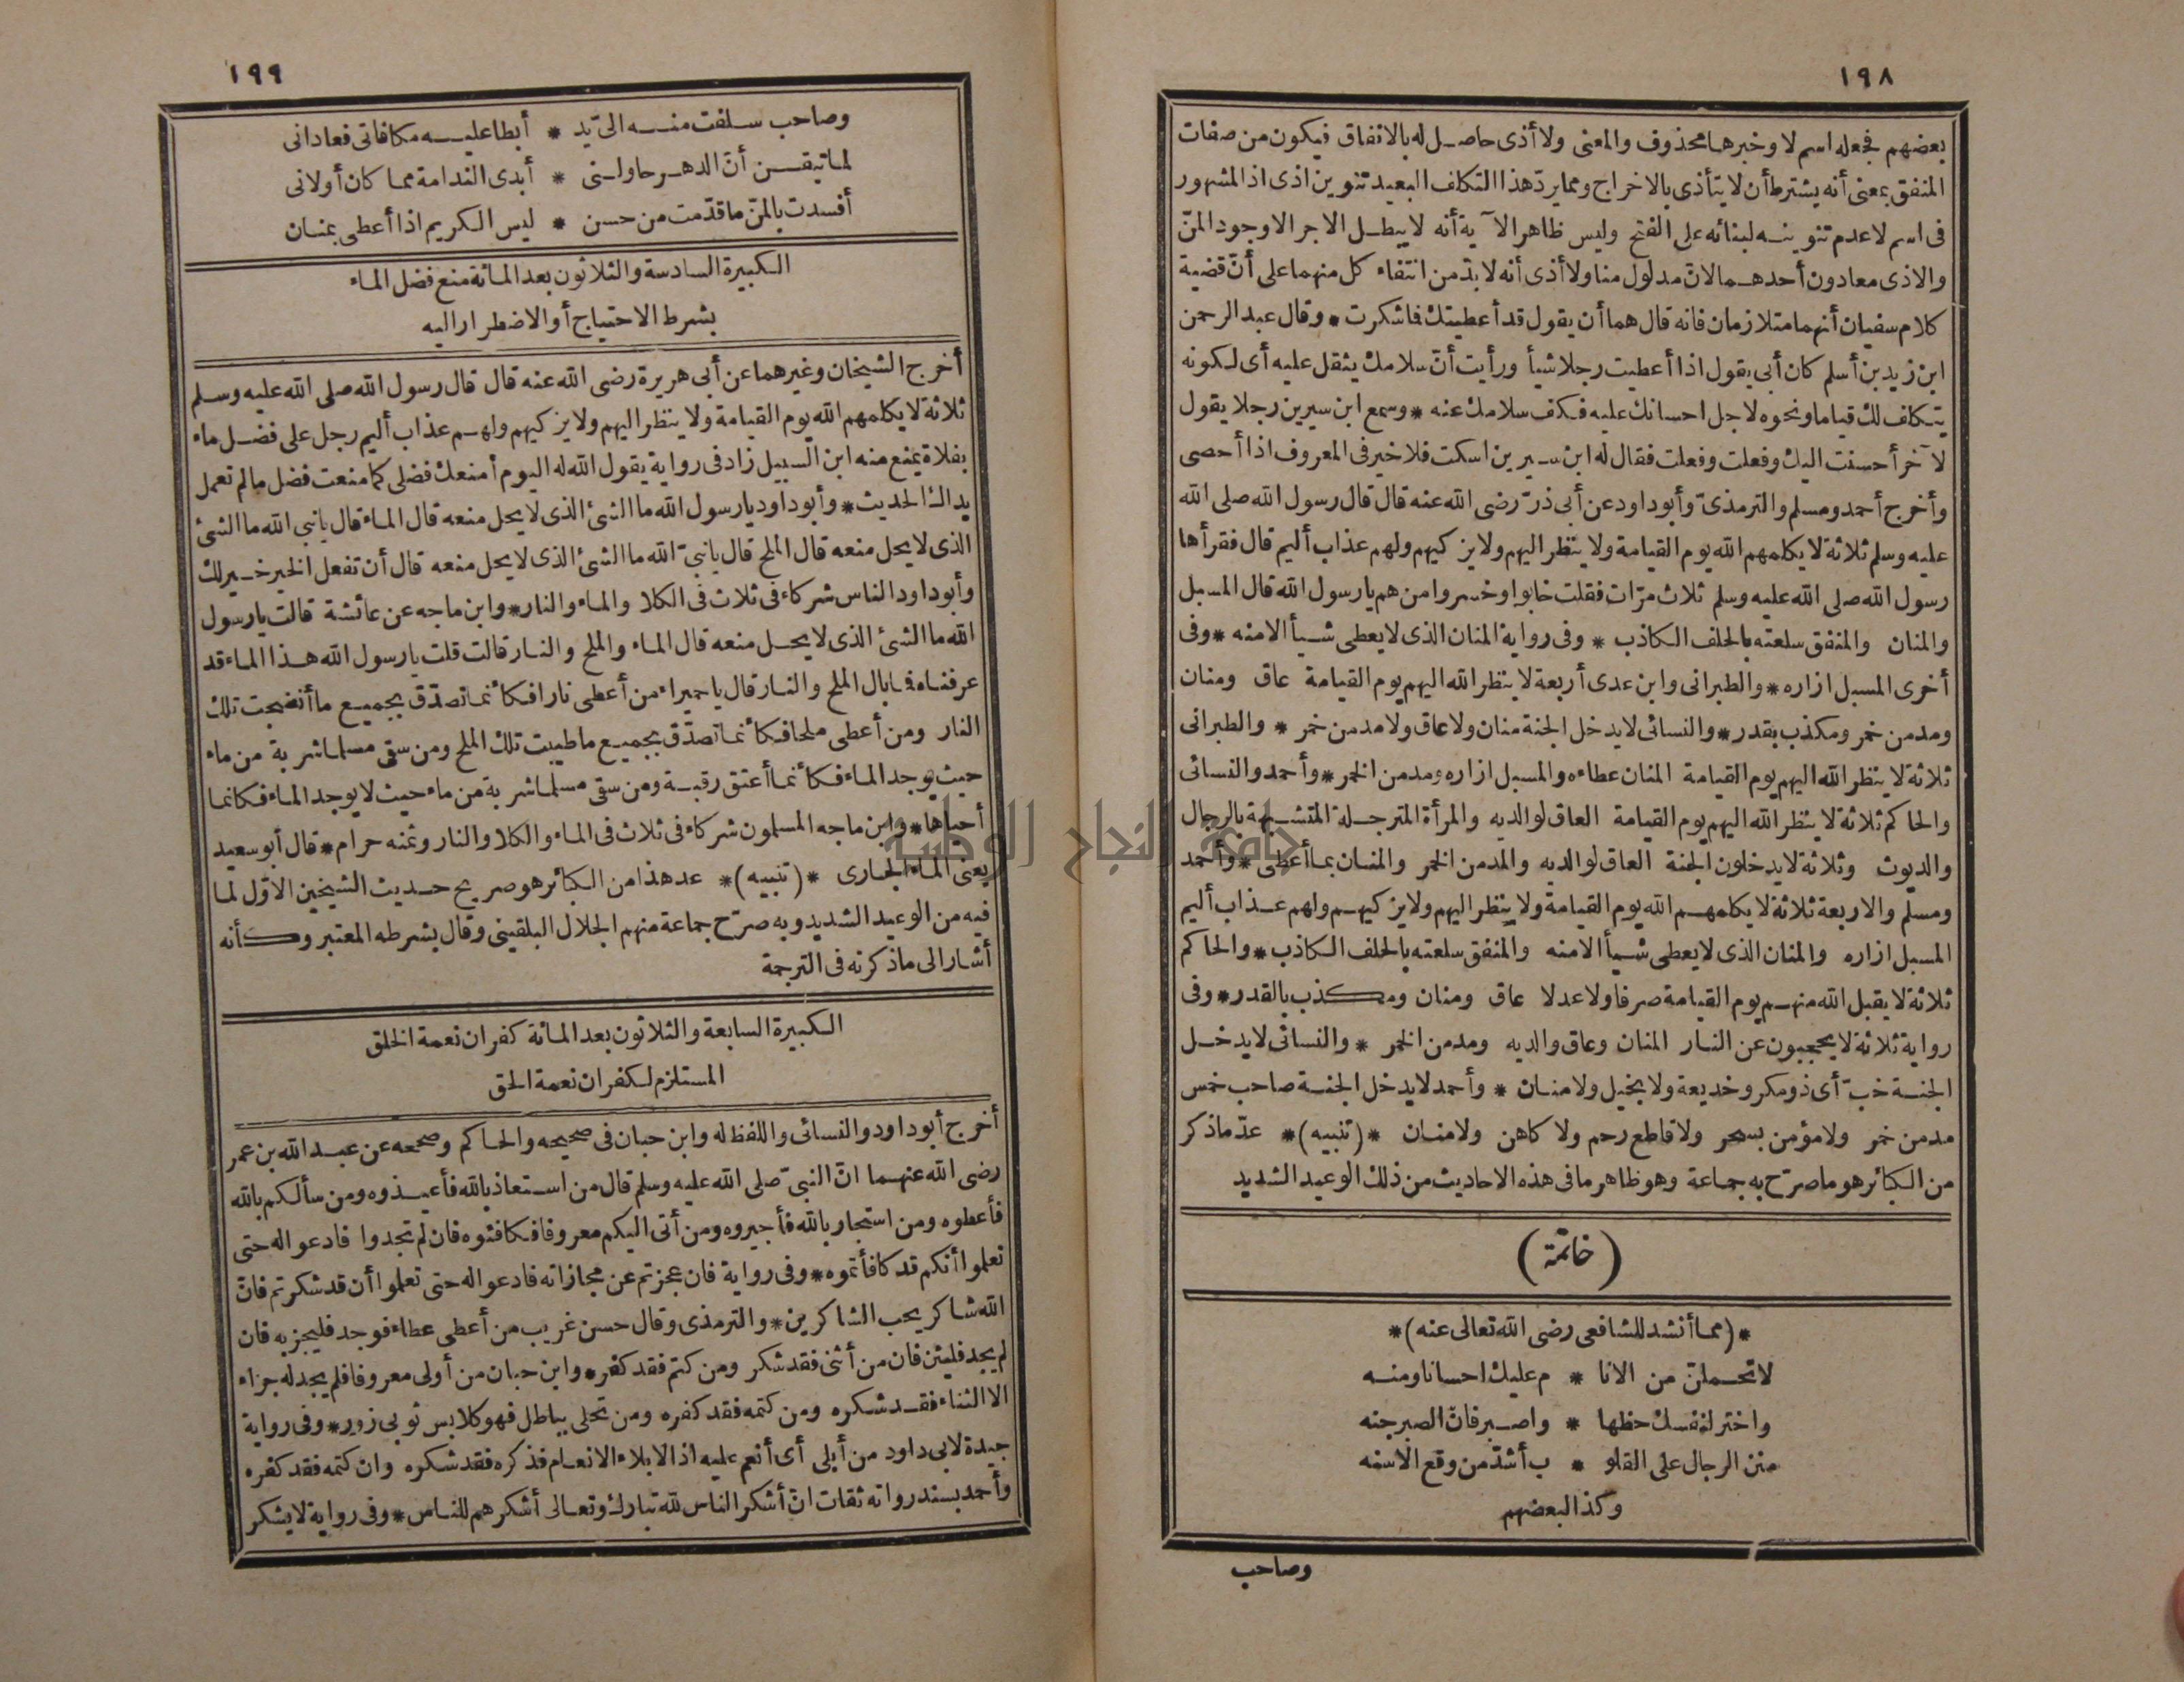 ١٩٨
بعضهم فجعله اسم لا وخبرها محذوف والمعنى ولا أذى حاصل له بالانفاق فيكون من صفات
المنفق بمعنى أنه يشترط أن لا يتأذى بالاخراج ومما يردّ هذا التكلف البعيد تنوين اذى اذ المشهور
فى اسم لا عدم تنوينه لبنائه على الفتح وليس ظاهر الآية أنه لا يبطل الاجر الا وجود المنّ
والاذى معا دون أحدهما لانّ مدلول منا ولا أذى أنه لا بدّ من انتفاء كل منهما على أنّ قضية
كلام سفيان أنهما متلازمان فانه قال هما أن يقول قد أعطيتك فاشكرت * وقال عبد الرحمن
ابن زيد بن أسلم كان أبى يقول اذا أعطيت رجلا شيأ ورأيت أنّ سلامك يثقل عليه أى لكونه
يتكلف لك قياما ونحوه لاجل احسانك عليه فكف سلامك عنه * وسمع ابن سيرين رجلا يقول
لآخر أحسنت اليك وفعلت وفعلت فقال له ابن سيرين اسكت فلا خير فى المعروف اذا أحصى
وأخرج أحمد ومسلم والترمذىّ وأبو داود عن أبى ذرّ رضى الله عنه قال قال رسول الله صلى الله
عليه وسلم ثلاثة لا يكلمهم الله يوم القيامة ولا ينظر اليهم ولا يزكيهم ولهم عذاب أليم قال فقرأها
رسول الله صلى الله عليه وسلم ثلاث مرّات فقلت خابوا وخسروا من هم يا رسول الله قال المسبل
والمنان والمنفق سلعته بالحلف الكاذب * وفى رواية المنان الذى لا يعطى شيأ الا منه * وفى
أخرى المسبل ازاره * والطبرانى وابن عدى أربعة لا ينظر الله اليهم يوم القيامة عاق ومنان
ومدمن خمر ومكذب بقدر * والنسائى لا يدخل الجنة منان ولا عاق ولا مدمن خمر * والطبرانى
ثلاثة لا ينظر الله اليهم يوم القيامة المنان عطاءه والمسبل ازاره ومدمن الخمر * وأحمد والنسائى
والحاكم ثلاثة لا ينظر الله اليهم يوم القيامة العاق لوالديه والمرأة المترجلة المتشبهة بالرجال
والديوث وثلاثة لا يدخلون الجنة العاق لوالديه والمدمن الخمر والمنان بما أعطى * وأحمد
ومسلم والاربعة ثلاثة لا يكلمهم الله يوم القيامة ولا ينظر اليهم ولا يزكيهم ولهم عذاب أليم
المسبل ازاره والمنان الذى لا يعطى شيأ الا منه والمنفق سلعته بالحلف الكاذب * والحاكم
ثلاثة لا يقبل الله منهم يوم القيامة صرفا ولا عدلا عاق ومنان ومكذب بالقدر * وفى
رواية ثلاثة لا يحجبون عن النار المنان وعاق والديه ومدمن الخمر * والنسائى لا يدخل
الجنة خبّ أى ذو مكر وخديعة ولا بخيل ولا منان * وأحمد لا يدخل الجنة صاحب خمس
مدمن خمر ولا مؤمن بسحر ولا قاطع رحم ولا كاهن ولا منان * (تنبيه) * عدّ ما ذكر
من الكبائر هو ما صرّح به جماعة وهو ظاهر ما فى هذه الاحاديث من ذلك الوعيد الشديد
(خاتمة)
* (مما أنشد للشافعى رضى الله تعالى عنه) *
لا تحملنّ من الانا * م عليك احسانا ومنه
واختر لنفسك حظها * واصبر فانّ الصبر جنه
منن الرجال على القلو * ب أشدّ من وقع الاسنه
وكذا لبعضهم
وصاحب
١٩٩
وصاحب سلفت منه الىّ يد * أبطا عليه مكافاتى فعادانى
لما تيقن أنّ الدهر حاولنى * أبدى الندامة مما كان أولانى
أفسدت بالمنّ ما قدّمت من حسن * ليس الكريم اذا أعطى بمنان
الكبيرة السادسة والثلاثون بعد المائة منع فضل الماء
بشرط الاحتياج أو الاضطرار اليه
أخرج الشيخان وغيرهما عن أبى هريرة رضى الله عنه قال قال رسول الله صلى الله عليه وسلم
ثلاثة لا يكلمهم الله يوم القيامة ولا ينظر اليهم ولا يزكيهم ولهم عذاب أليم رجل على فضل ماء
بفلاة يمنع منه ابن السبيل زاد فى رواية يقول الله له اليوم أمنعك فضلى كما منعت فضل ما لم تعمل
يداك الحديث * وأبو داود يا رسول الله ما الشئ الذى لا يحل منعه قال الماء قال يا نبى الله ما الشئ
الذى لا يحل منعه قال الملح قال يا نبىّ الله ما الشئ الذى لا يحل منعه قال أن تفعل الخير خير لك
وأبو داود الناس شركاء فى ثلاث فى الكلا والماء والنار * وابن ماجه عن عائشة قالت يا رسول
الله ما الشئ الذى لا يحل منعه قال الماء والملح والنار قالت قلت يا رسول الله هذا الماء قد
عرفناه فما بال الملح والنار قال يا حميراء من أعطى نارا فكأنما تصدّق بجميع ما أنضجت تلك
النار ومن أعطى ملحا فكأنما تصدّق بجميع ما طيبت تلك الملح ومن سقى مسلما شربة من ماء
حيث يوجد الماء فكأنما أعتق رقبة ومن سقى مسلما شربة من ماء حيث لا يوجد الماء فكانما
أحياها * وابن ماجه المسلمون شركاء فى ثلاث فى الماء والكلا والنار وثمنه حرام * قال أبو سعيد
يعنى الماء الجارى * (تنبيه) * عد هذا من الكبائر هو صريح حديث الشيخين الاوّل لما
فيه من الوعيد الشديد وبه صرّح جماعة منهم الجلال البلقينى وقال بشرطه المعتبر وكأنه
أشار الى ما ذكرته فى الترجمة
الكبيرة السابعة والثلاثون بعد المائة كفران نعمة الخلق
المستلزم لكفران نعمة الحق
أخرج أبو داود والنسائى واللفظ له وابن حبان فى صحيحه والحاكم وصححه عن عبد الله بن عمر
رضى الله عنهما انّ النبىّ صلى الله عليه وسلم قال من استعاذ بالله فأعيذوه ومن سألكم بالله
فأعطوه ومن استجار بالله فأجيروه ومن أتى اليكم معروفا فكافئوه فان لم تجدوا فادعوا له حتى
تعلموا أنكم قد كافأتموه * وفى رواية فان عجزتم عن مجازاته فادعوا له حتى تعلموا أن قد شكرتم فانّ
الله شاكر يحب الشاكرين * والترمذى وقال حسن غريب من أعطى عطاء فوجد فليجز به فان
لم يجد فليثن فان من أثنى فقد شكر ومن كتم فقد كفر * وابن حبان من أولى معروفا فلم يجد له جزاء
الا الثناء فقد شكره ومن كتمه فقد كفره ومن تحلى بباطل فهو كلابس ثوبى زور * وفى رواية
جيدة لابى داود من أبلى أى أنعم عليه اذ الابلاء الانعام فذكره فقد شكره وان كتمه فقد كفره
وأحمد بسند رواته ثقات انّ أشكر الناس لله تبارك وتعالى أشكرهم للناس * وفى رواية لا يشكر
جامعة النجاح الوطنية